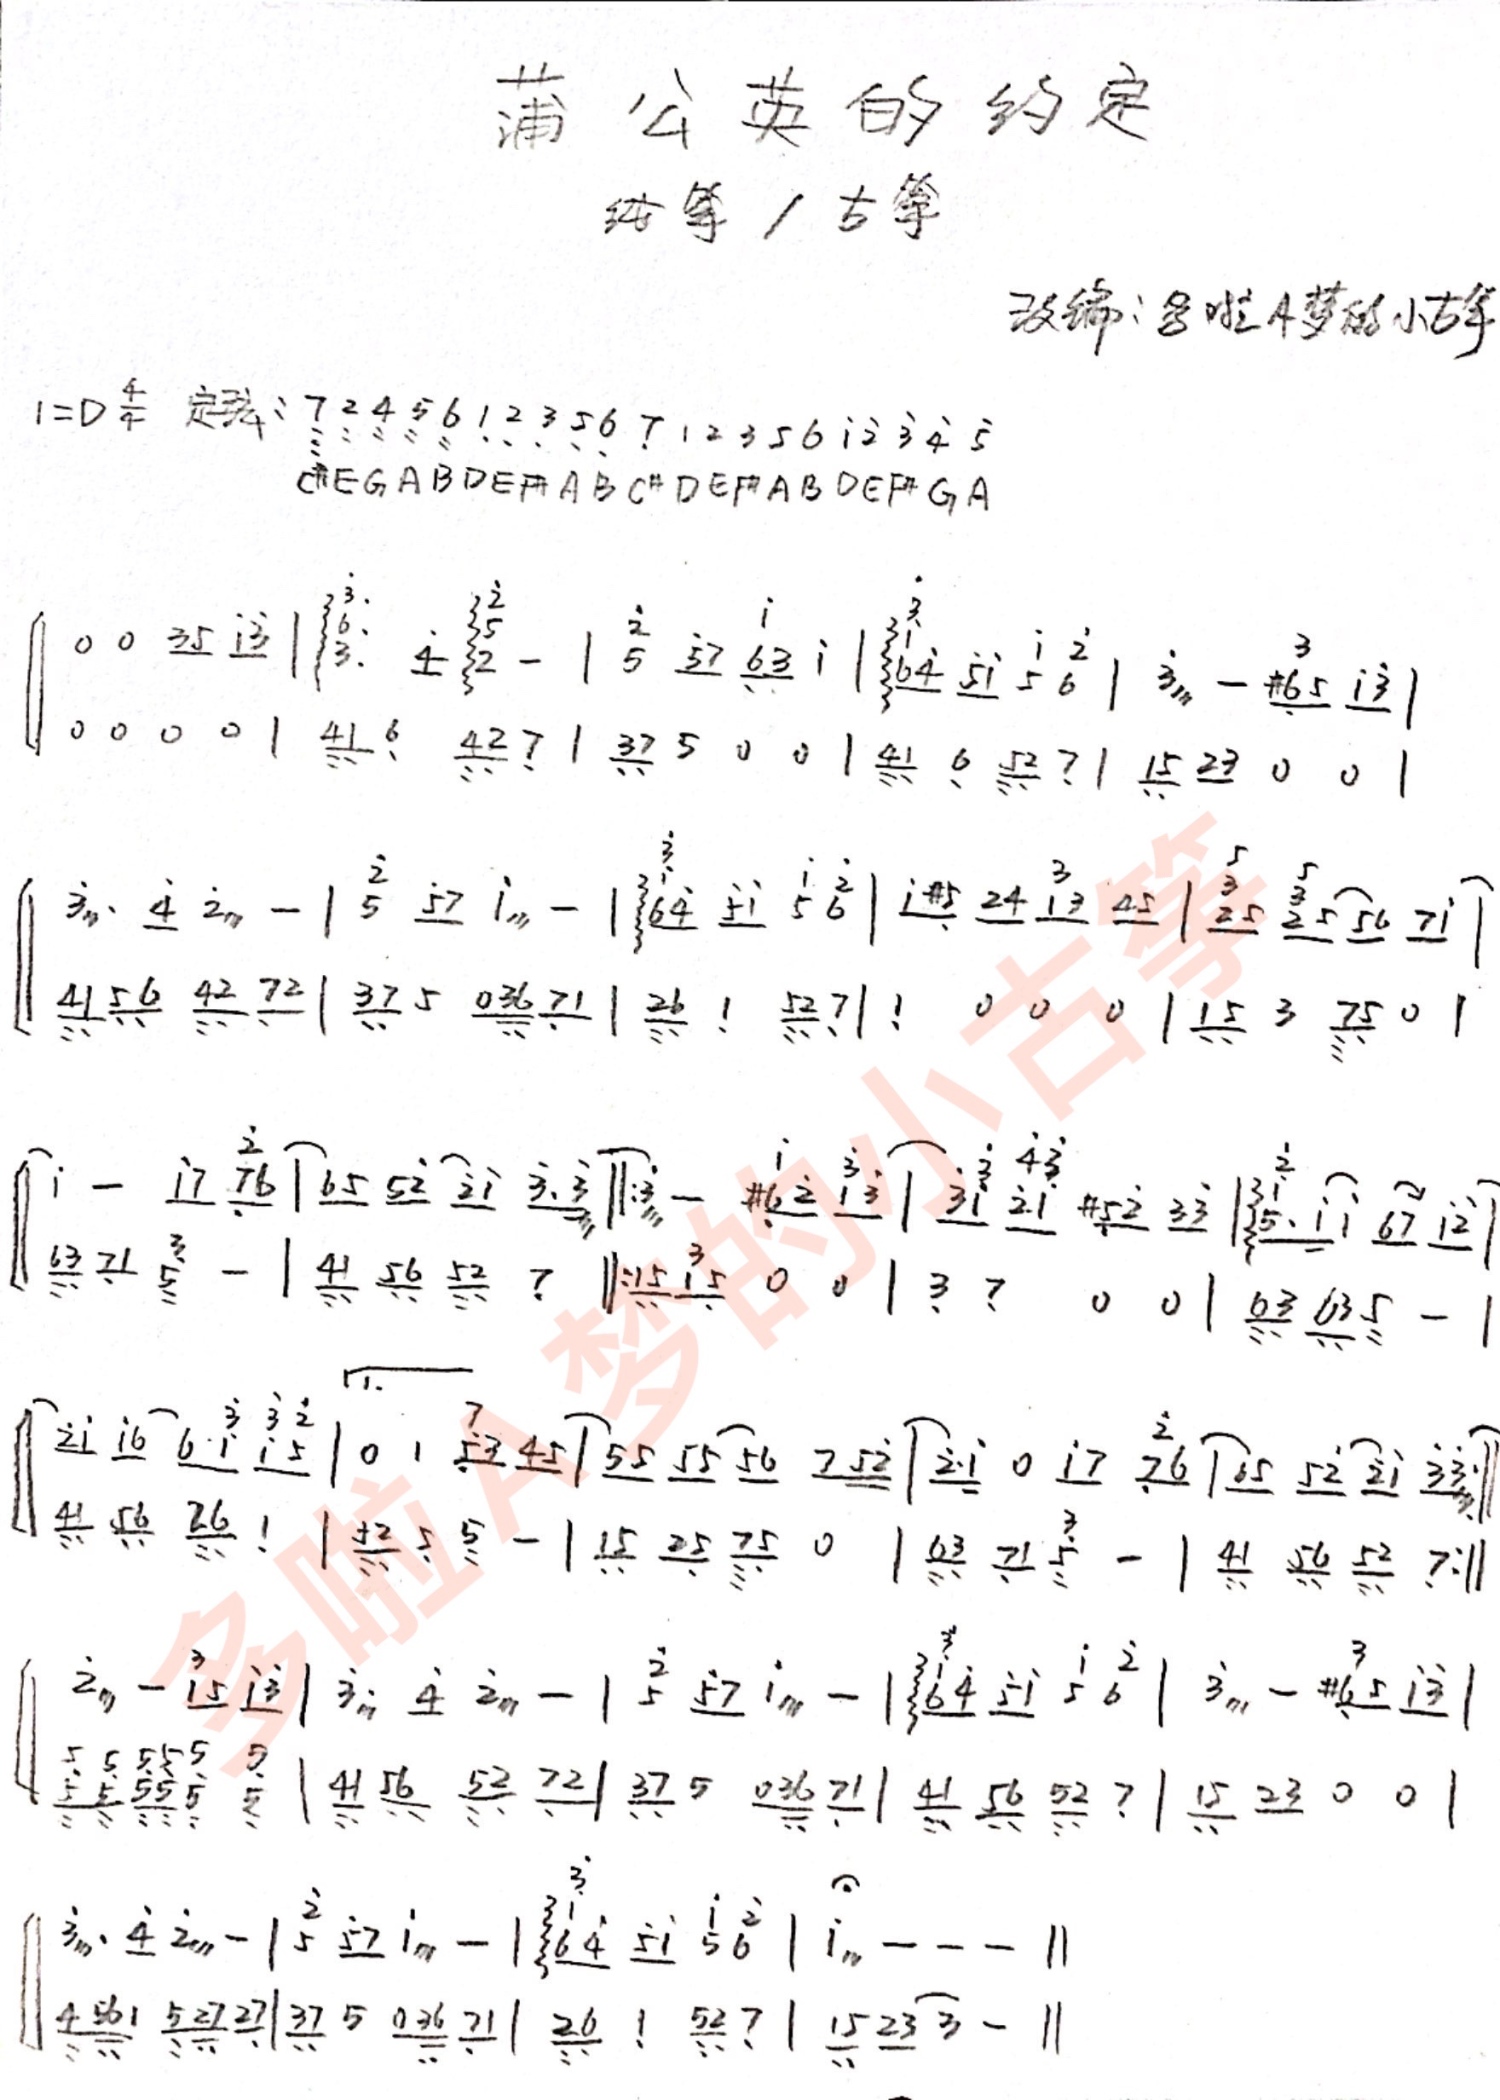 蒲公英的约定
纯筝 / 古筝
改编:多啦A梦的小古筝
1=D 4/4 定弦: 7 2 4 5 6 1 2 3 5 6 7 1 2 3 5 6 1 2 3 4 5
C# E G A B D E F# A B C# D E F# A B D E F# G A
0 0 35 13 | 3 6 3 · 4 2 5 2 - | 2 5 57 1 63 1 | 3 1 64 51 1 5 2 6 | 3 - 3 #65 13 |
0 0 0 0 | 41 6 42 7 | 37 5 0 0 | 41 6 52 7 | 15 23 0 0 |
3 · 4 2 - | 2 5 57 1 - | 3 1 64 51 1 5 2 6 | 1#5 24 3 13 45 | 5 3 25 5 3 25 56 71 |
41 56 42 72 | 37 5 036 71 | 26 1 52 7 | 1 0 0 0 | 15 3 75 0 |
1 - 17 2 76 | 65 52 21 3·3 ‖: 3 - 1 #62 3 13 | 31 2 21 43 #52 33 | 2 1 5·11 67 12 |
63 71 3 5 - | 41 56 52 7 ‖: 15 3 15 0 0 | 3 7 0 0 | 63 63 5 - |
21 16 6·1 3 15 3 2 | 1. 0 1 7 53 45 | 55 55 56 7 52 | 2·1 0 17 2 76 | 65 52 21 33 :‖
41 56 26 1 | 52 5 5 - | 15 25 75 0 | 63 71 3 5 - | 41 56 52 7 :‖
2 - 3 15 13 | 3 · 4 2 - | 2 5 57 1 - | 3 1 64 51 1 5 2 6 | 3 - 3 #65 13 |
5 5 5 5 55 55 5 5 5 5 | 41 56 52 72 | 37 5 036 71 | 41 56 52 7 | 15 23 0 0 |
3 · 4 2 - | 2 5 57 1 - | 3 1 64 51 1 5 2 6 | 1 - - - ‖
4 561 5 27 27 | 37 5 036 71 | 26 1 52 7 | 15 23 3 - ‖
多啦A梦的小古筝